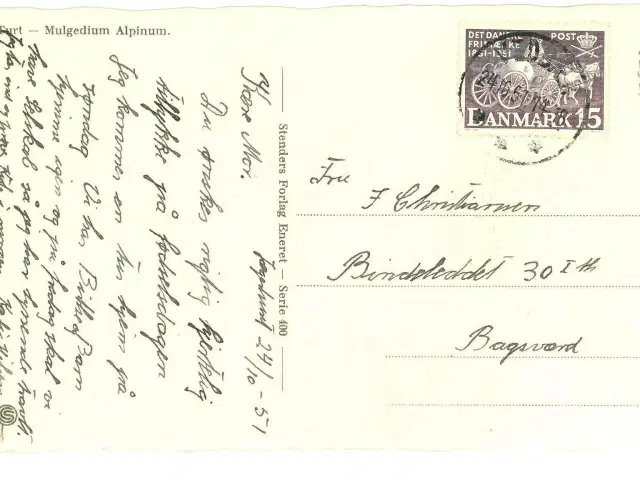 Turt — Mulgedium Alpinum.
DET DANSKE
FRIMÆRKE
1851-1951
POST
DANMARK 15
Stenders Forlag Eneret — Serie 400
24/10-51
Kære Mor.
Du ønskes rigtig hjertelig
tillykke på fødselsdagen
Jeg kommer en tur hjem på
Søndag Vi har
hjemme igen og på fredag skal vi
have så jeg har travlt.
Fru
J Christiansen
Bindeleddet 30 I th
Bagsværd